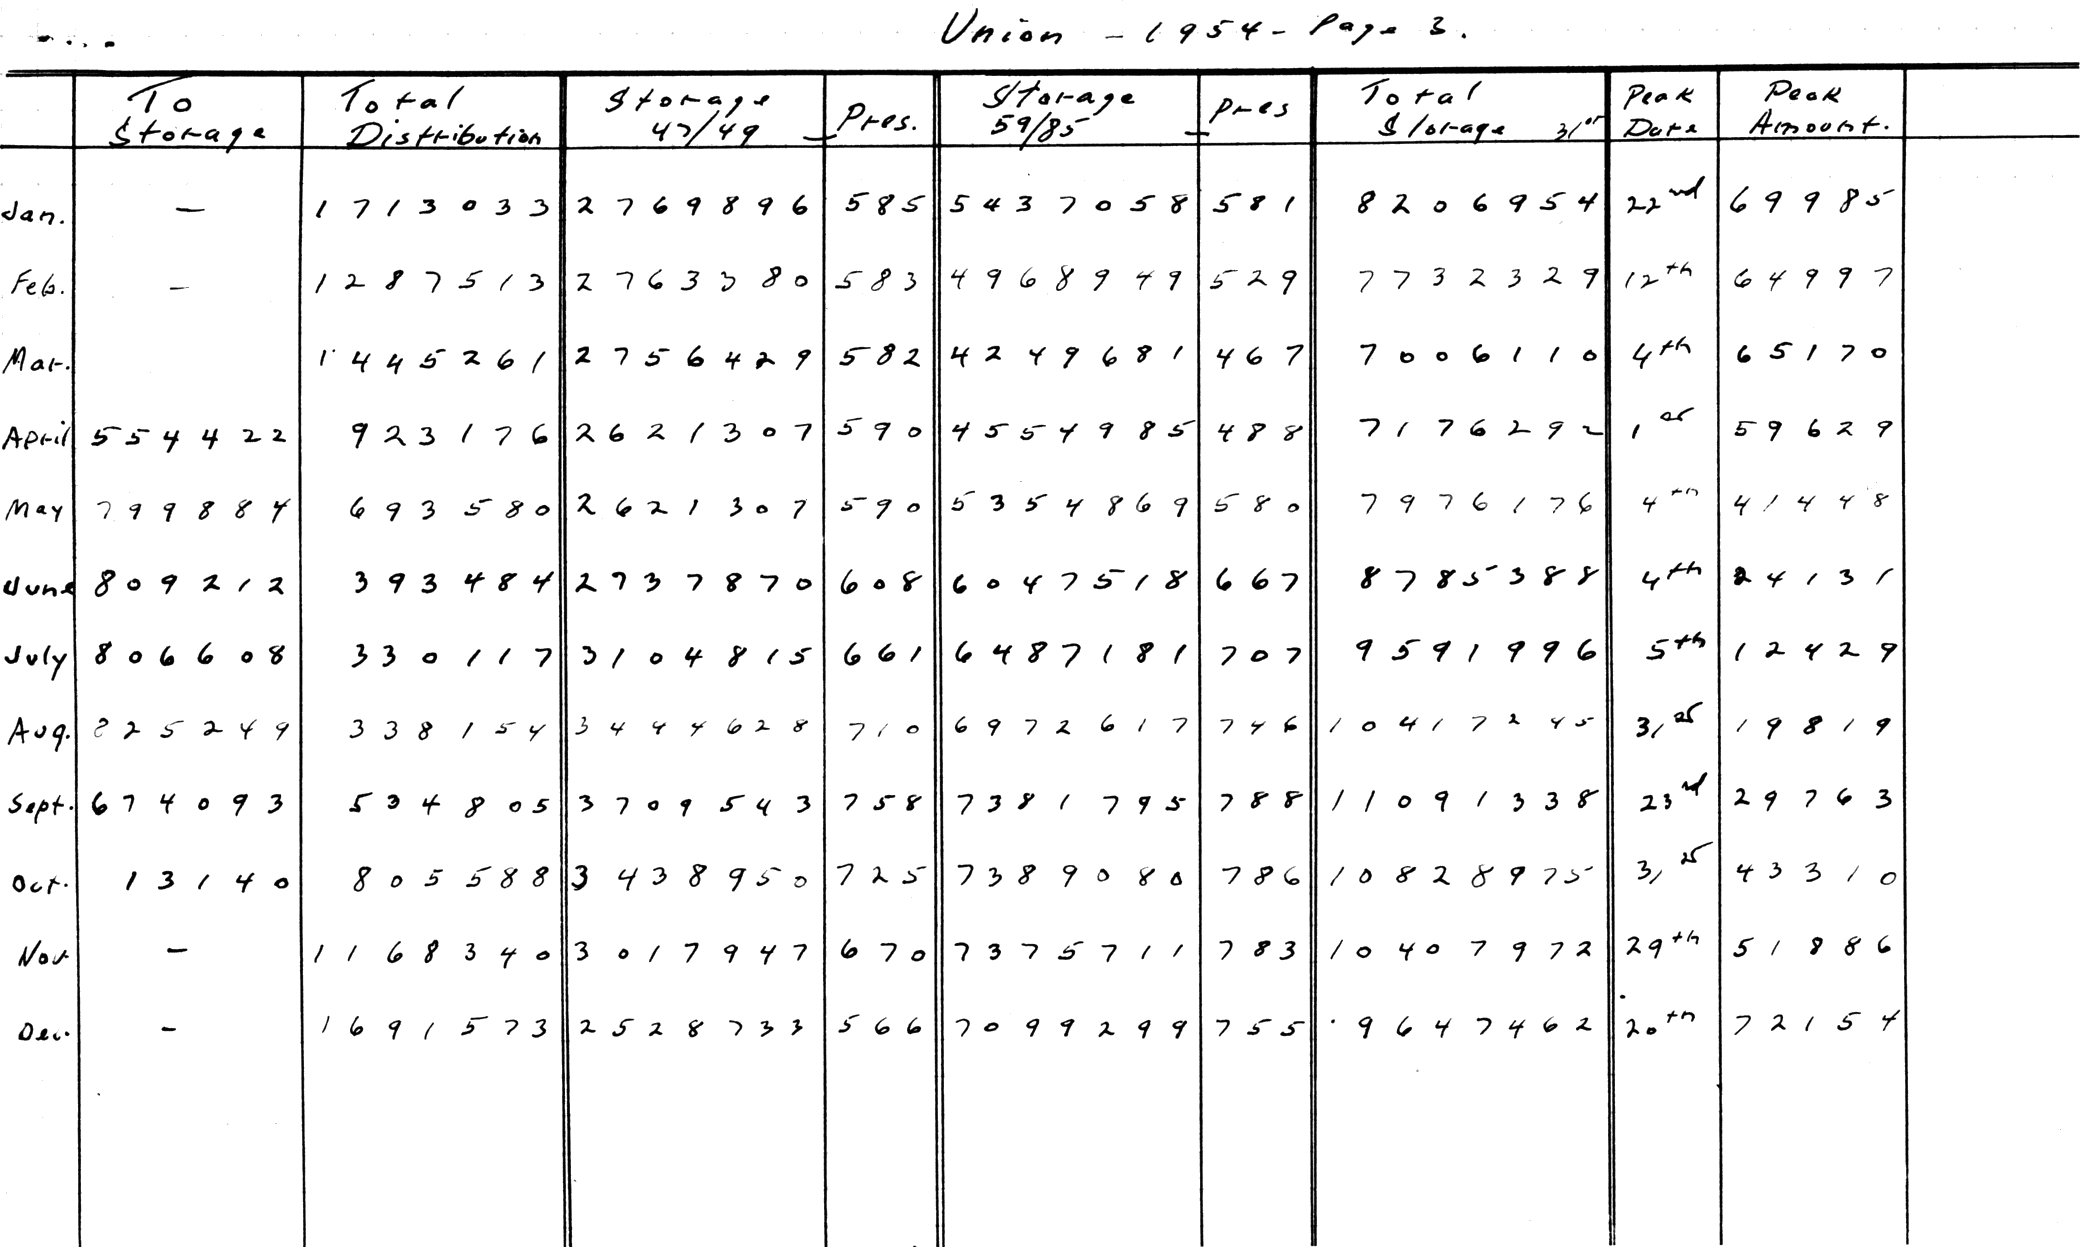 Union - 1954 - Page 3.
To Storage Total Distribution Storage 47/49 Pres. Storage 59/85 Pres Total Storage 31st Peak Date Peak Amount.
Jan. - 1713033 2769896 585 5437058 581 8206954 22nd 69985
Feb. - 1287513 2763380 583 4968949 529 7732329 12th 64997
Mar. 1445261 2756429 582 4249681 467 7006110 4th 65170
April 554422 923176 2621307 590 4554985 488 7176292 1st 59629
May 799884 693580 2621307 590 5354869 580 7976176 4th 41448
June 809212 393484 2737870 608 6047518 667 8785388 4th 24131
July 806608 330117 3104815 661 6487181 707 9591996 5th 12429
Aug. 825249 338154 3444628 710 6972617 746 10417245 31st 19819
Sept. 674093 534805 3709543 758 7381795 788 11091338 23rd 29763
Oct. 13140 805588 3438950 725 7389080 786 10828975 31st 43310
Nov - 1168340 3017947 670 7375711 783 10407972 29th 51886
Dec. - 1691573 2528733 566 7099299 755 9647462 20th 72154